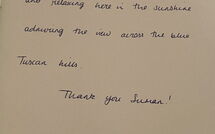 and relaxing here in the sunshine
admiring the view across the blue
Tuscan hills
Thank you Susan!